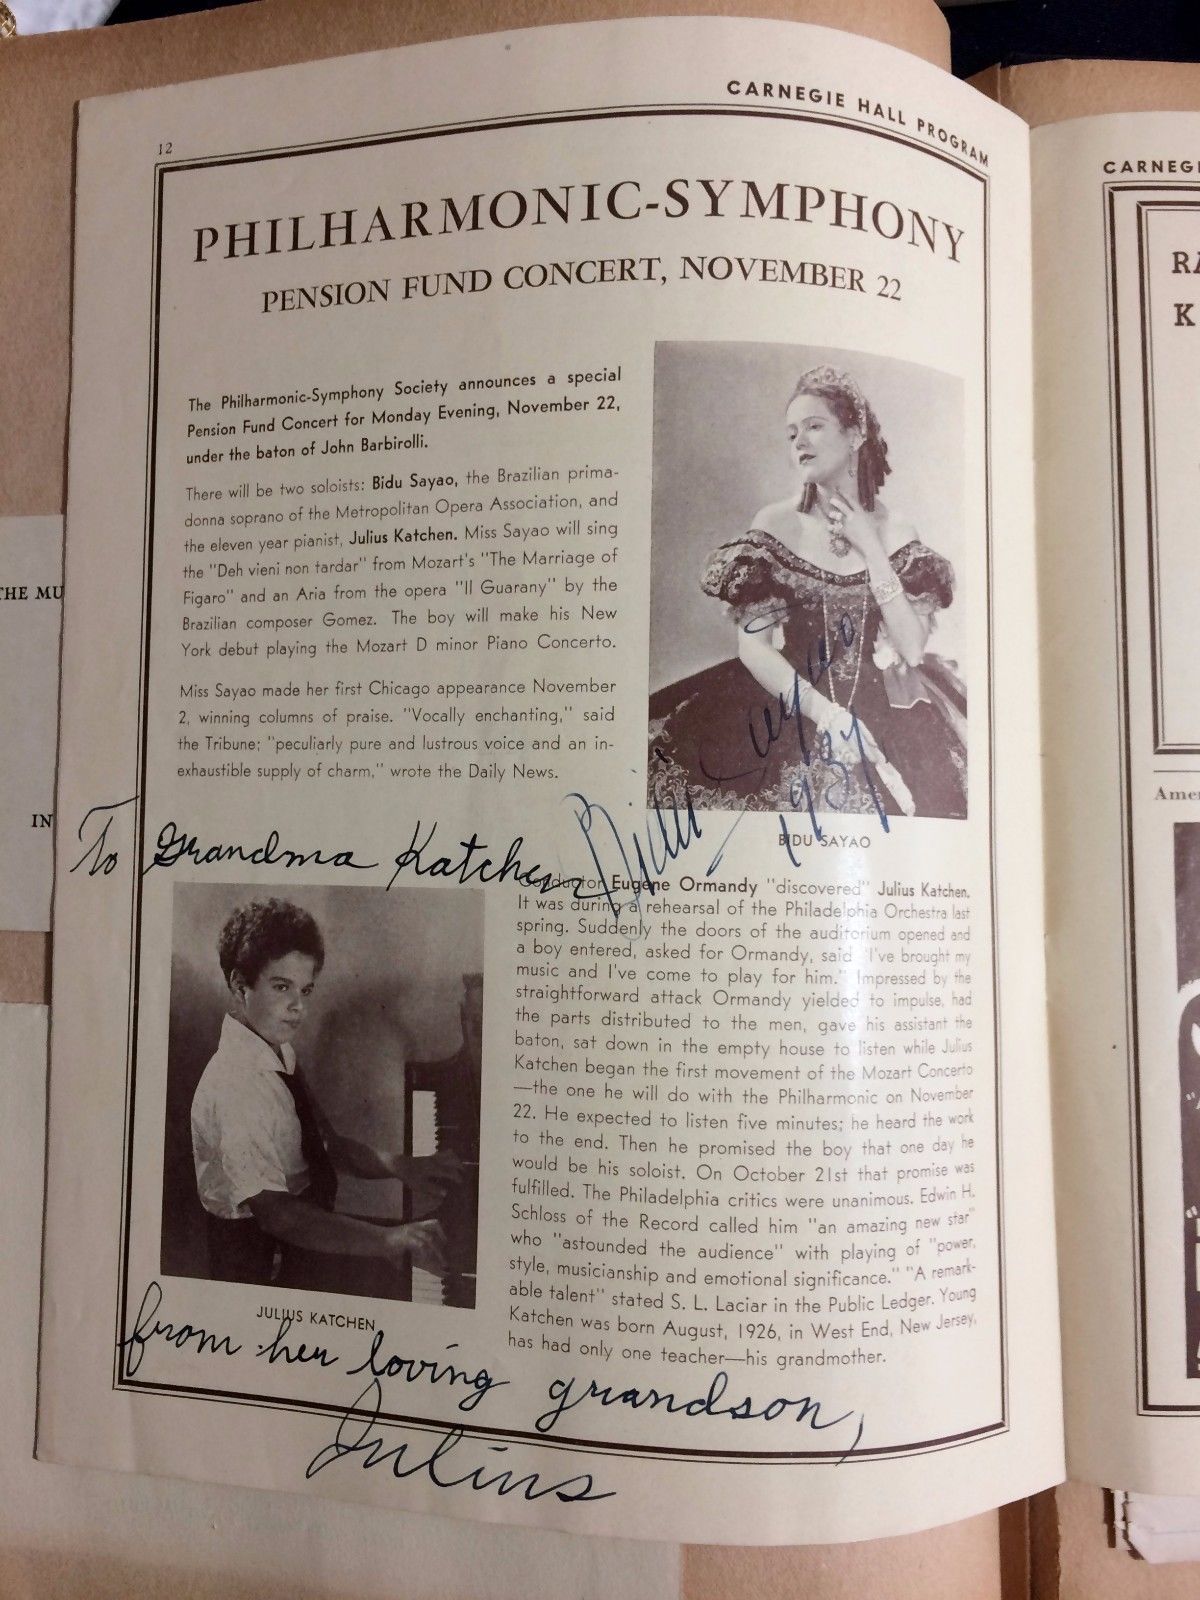 CARNEGIE HALL PROGRAM
12
PHILHARMONIC-SYMPHONY
PENSION FUND CONCERT, NOVEMBER 22
The Philharmonic-Symphony Society announces a special
Pension Fund Concert for Monday Evening, November 22,
under the baton of John Barbirolli.
There will be two soloists: Bidu Sayao, the Brazilian prima-
donna soprano of the Metropolitan Opera Association, and
the eleven year pianist, Julius Katchen. Miss Sayao will sing
the "Deh vieni non tardar" from Mozart's "The Marriage of
Figaro" and an Aria from the opera "Il Guarany" by the
Brazilian composer Gomez. The boy will make his New
York debut playing the Mozart D minor Piano Concerto.
Miss Sayao made her first Chicago appearance November
2, winning columns of praise. "Vocally enchanting," said
the Tribune; "peculiarly pure and lustrous voice and an in-
exhaustible supply of charm," wrote the Daily News.
Bidu Sayao
1937
BIDU SAYAO
To Grandma Katchen
Conductor Eugene Ormandy "discovered" Julius Katchen.
It was during a rehearsal of the Philadelphia Orchestra last
spring. Suddenly the doors of the auditorium opened and
a boy entered, asked for Ormandy, said "I've brought my
music and I've come to play for him." Impressed by the
straightforward attack Ormandy yielded to impulse, had
the parts distributed to the men, gave his assistant the
baton, sat down in the empty house to listen while Julius
Katchen began the first movement of the Mozart Concerto
—the one he will do with the Philharmonic on November
22. He expected to listen five minutes; he heard the work
to the end. Then he promised the boy that one day he
would be his soloist. On October 21st that promise was
fulfilled. The Philadelphia critics were unanimous. Edwin H.
Schloss of the Record called him "an amazing new star"
who "astounded the audience" with playing of "power,
style, musicianship and emotional significance." "A remark-
able talent" stated S. L. Laciar in the Public Ledger. Young
Katchen was born August, 1926, in West End, New Jersey,
has had only one teacher—his grandmother.
JULIUS KATCHEN
from her loving grandson,
Julius
THE MU
IN
CARNEGI
RA
K
Amer